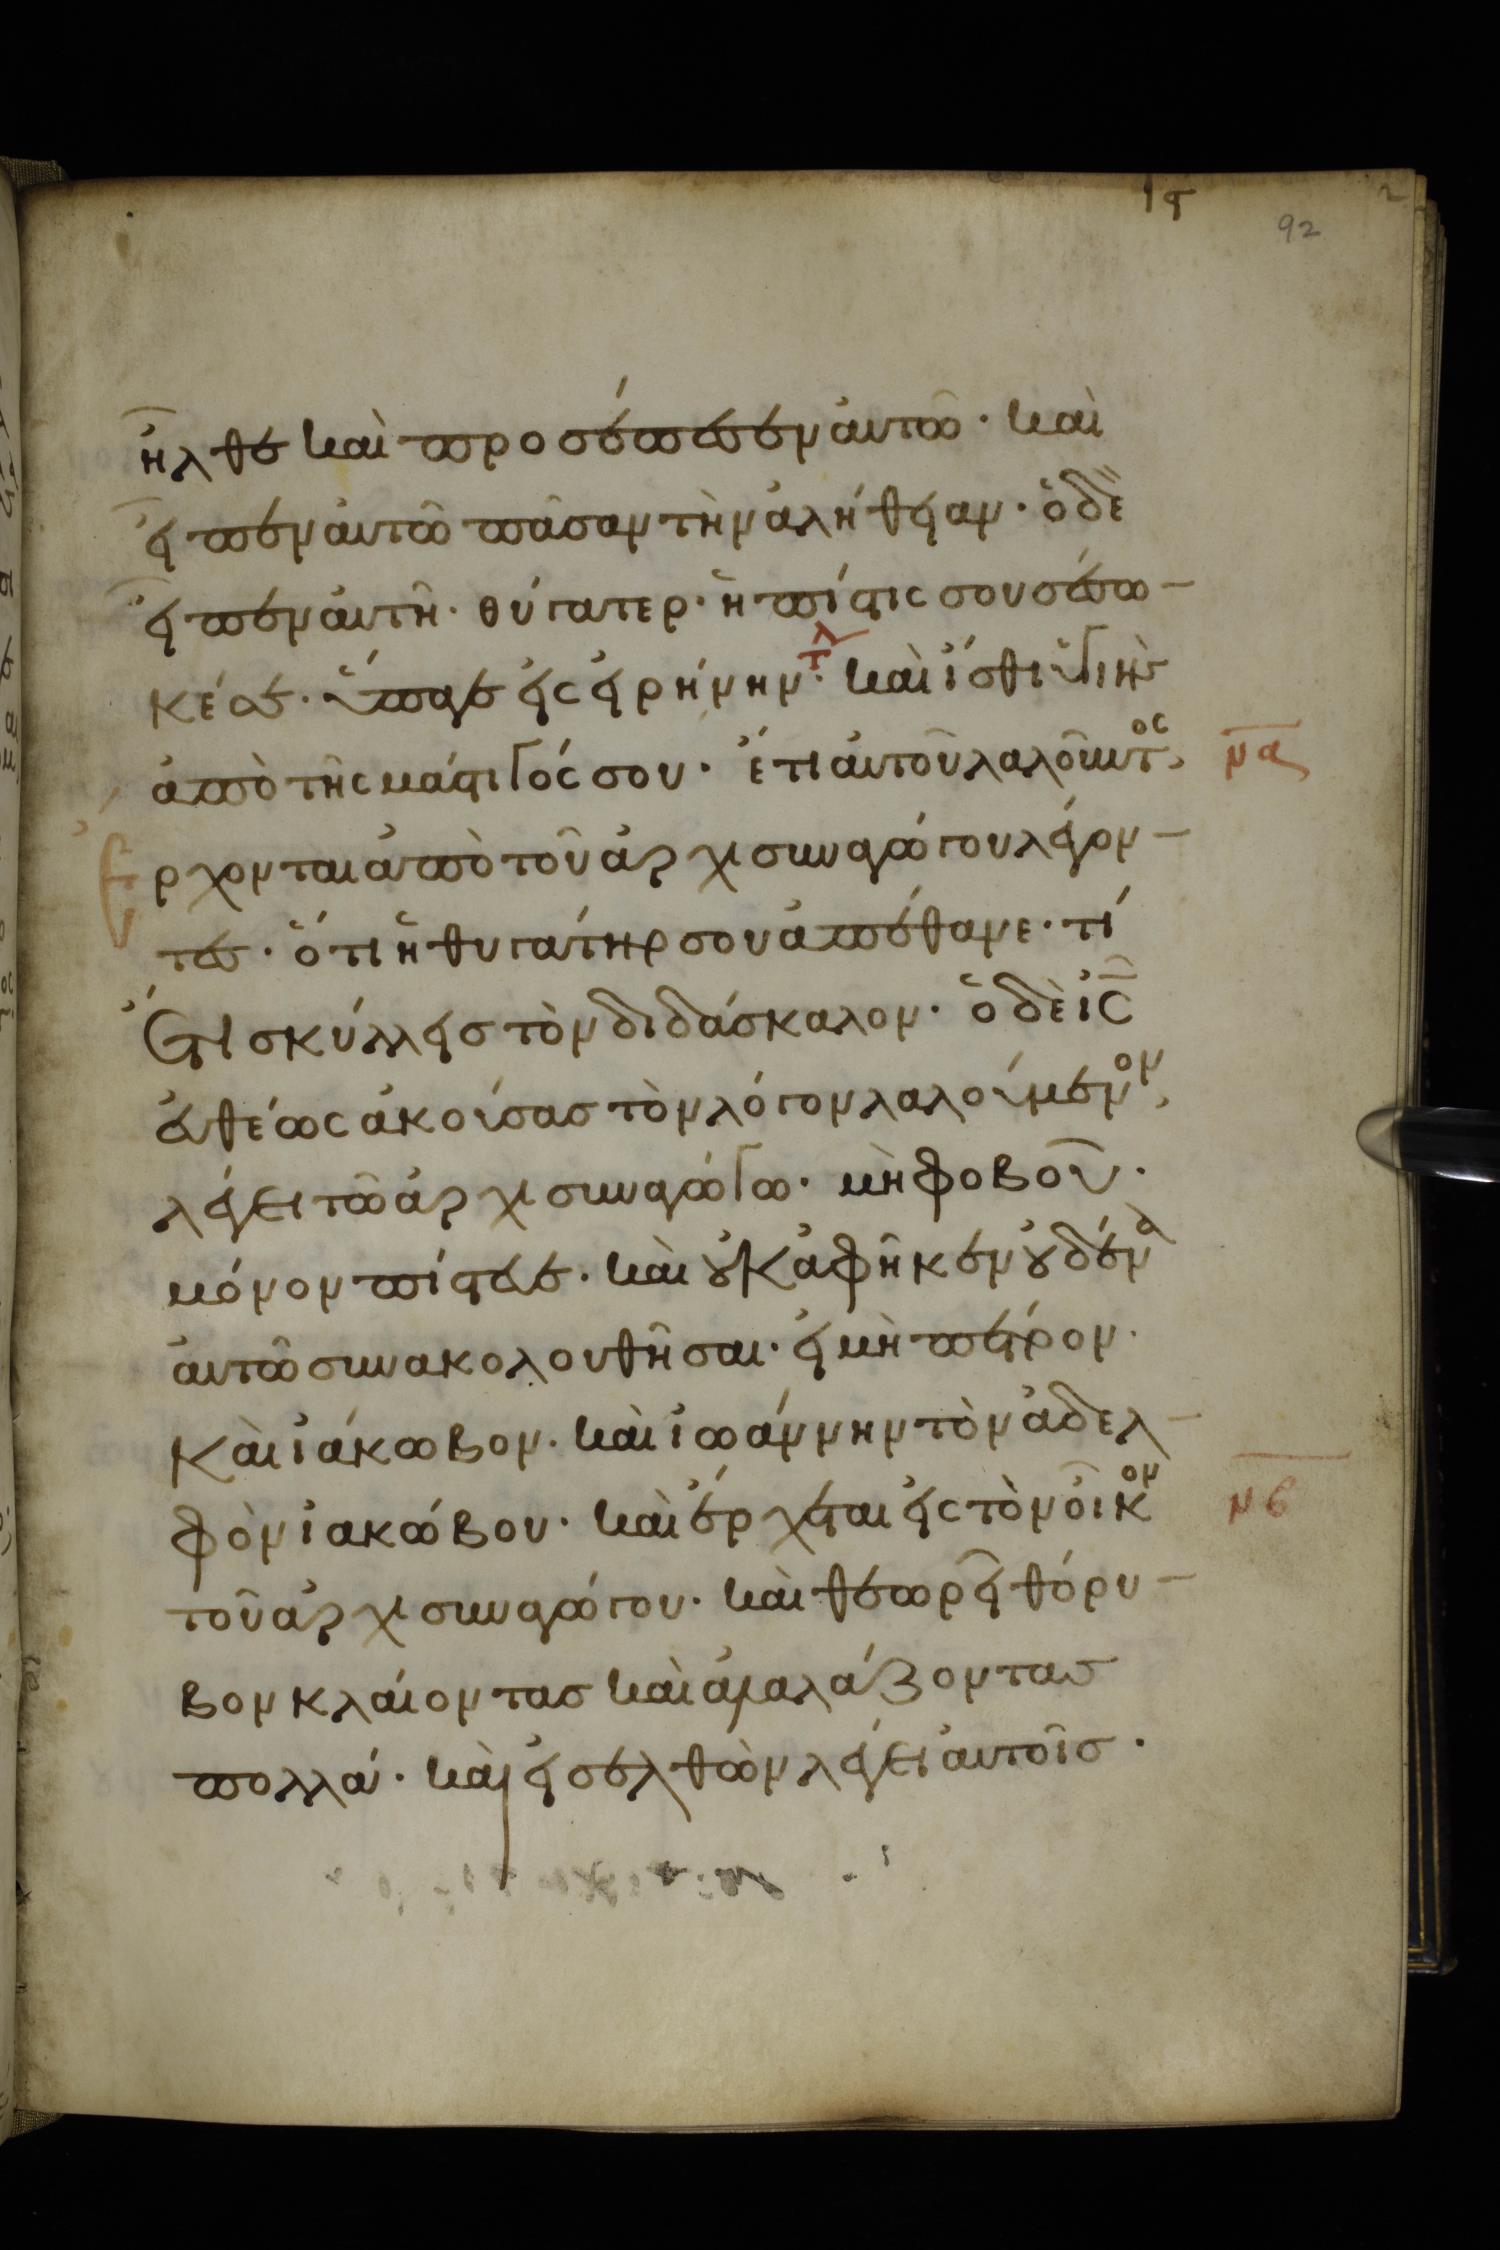 ιϛ
92
ἦλθε καὶ προσέπεσεν αὐτῶ · καὶ
εἶπεν αὐτῶ πᾶσαν τὴν ἀλήθειαν · ὁ δὲ
εἶπεν αὐτῆ · θύγατερ · ἡ πίστις σου σέσω–
κέ σε · ὕπαγε εἰς εἰρήνην · καὶ ἴσθι ὑγιὴς
ἀπὸ τῆς μάστιγός σου · ἔτι αὐτοῦ λαλοῦντος
να
ἔρχονται ἀπὸ τοῦ ἀρχισυναγώγου λέγον–
τες · ὅτι ἡ θυγάτηρ σου ἀπέθανε · τί
ἔτι σκύλλεις τὸν διδάσκαλον · ὁ δὲ ις
εὐθέως ἀκούσας τὸν λόγον λαλούμενον
λέγει τῶ ἀρχισυναγώγω · μὴ φοβοῦ ·
μόνον πίστευε · καὶ οὐκ ἀφῆκεν οὐδένα
αὐτῶ συνακολουθῆσαι · εἰ μὴ πέτρον ·
καὶ ἰάκωβον · καὶ ἰωάννην τὸν ἀδελ–
φὸν ἰακώβου · καὶ ἔρχεται εἰς τὸν οἶκον
νβ
τοῦ ἀρχισυναγώγου · καὶ θεωρεῖ θόρυ–
βον κλαίοντας καὶ ἀλαλάζοντας
πολλά · καὶ εἰσελθὼν λέγει αὐτοῖς ·